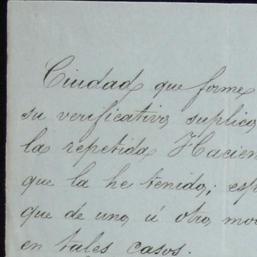 Ciudad que forme
su verificativo, suplico,
la repetida Hacien
que la he tenido; esp
que de uno, ú otro, mo
en tales casos.